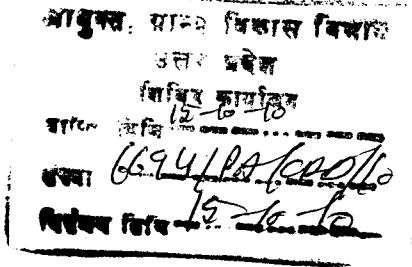 आयुक्त, ग्राम्य विकास विभाग
उत्तर प्रदेश
शिविर कार्यालय
प्राप्ति तिथि 15-10-10
संख्या 6694/PA/CRD/10
तिथि 15-10-10